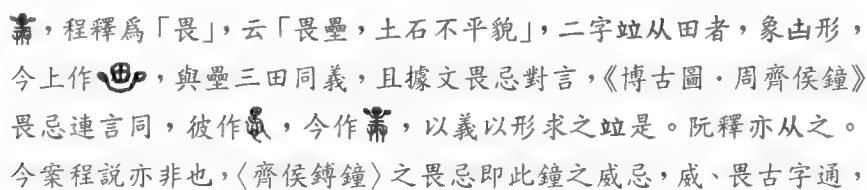 ，程釋爲「畏」，云「畏壘，土石不平貌」，二字竝从田者，象凷形，
今上作，與壘三田同義，且據文畏忌對言，《博古圖．周齊侯鐘》
畏忌連言同，彼作，今作，以義以形求之竝是。阮釋亦从之。
今案程説亦非也，〈齊侯鎛鐘〉之畏忌即此鐘之威忌，威、畏古字通，